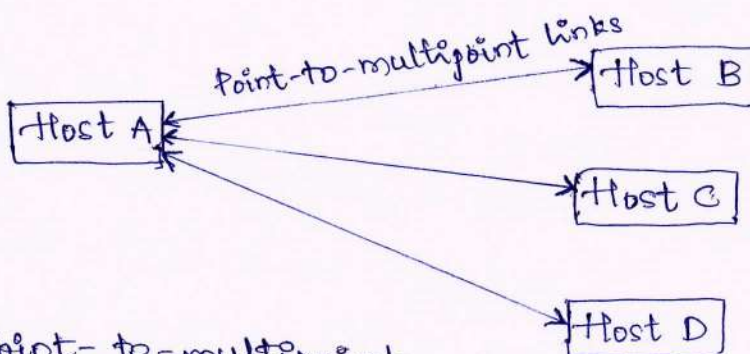 Point-to-multipoint links
Host A
Host B
Host C
Host D
Point-to-multipoint